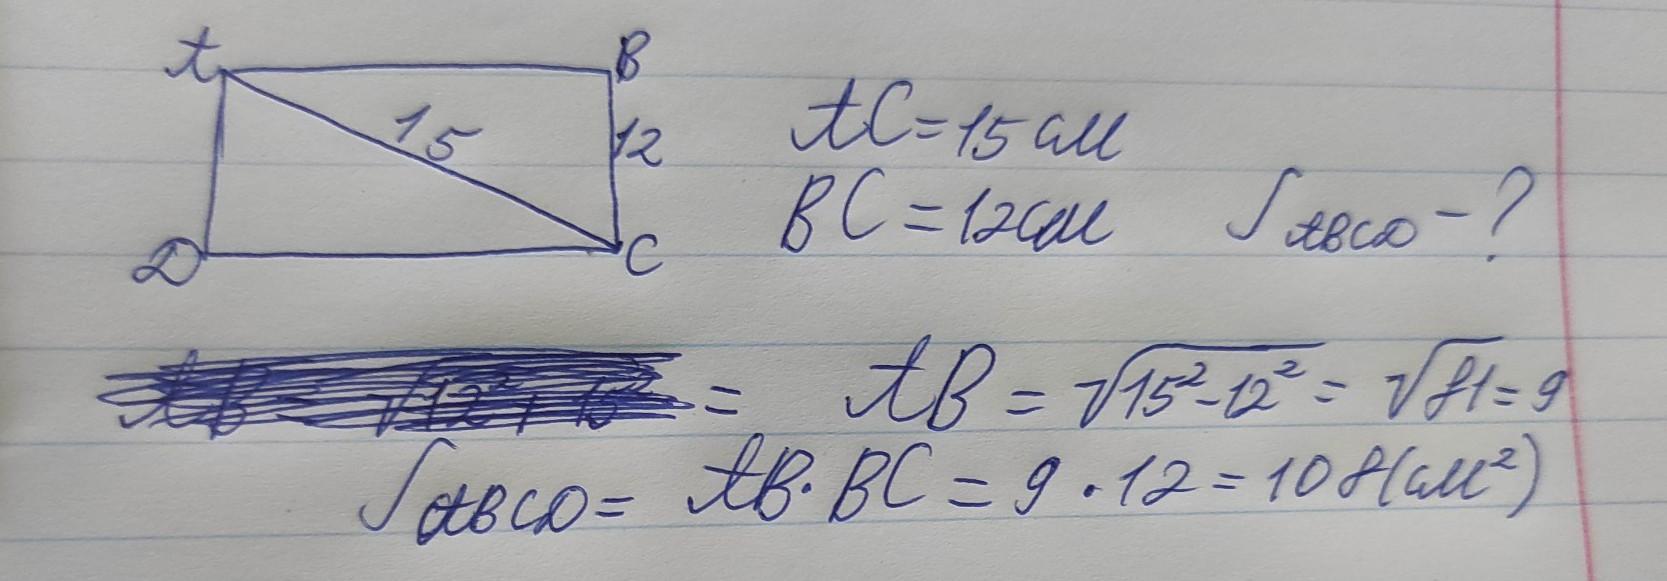 A B
15 12
D C
AC = 15 см
BC = 12 см S ABCD - ?
= AB = √15² - 12² = √81 = 9
S ABCD = AB · BC = 9 · 12 = 108 (см²)